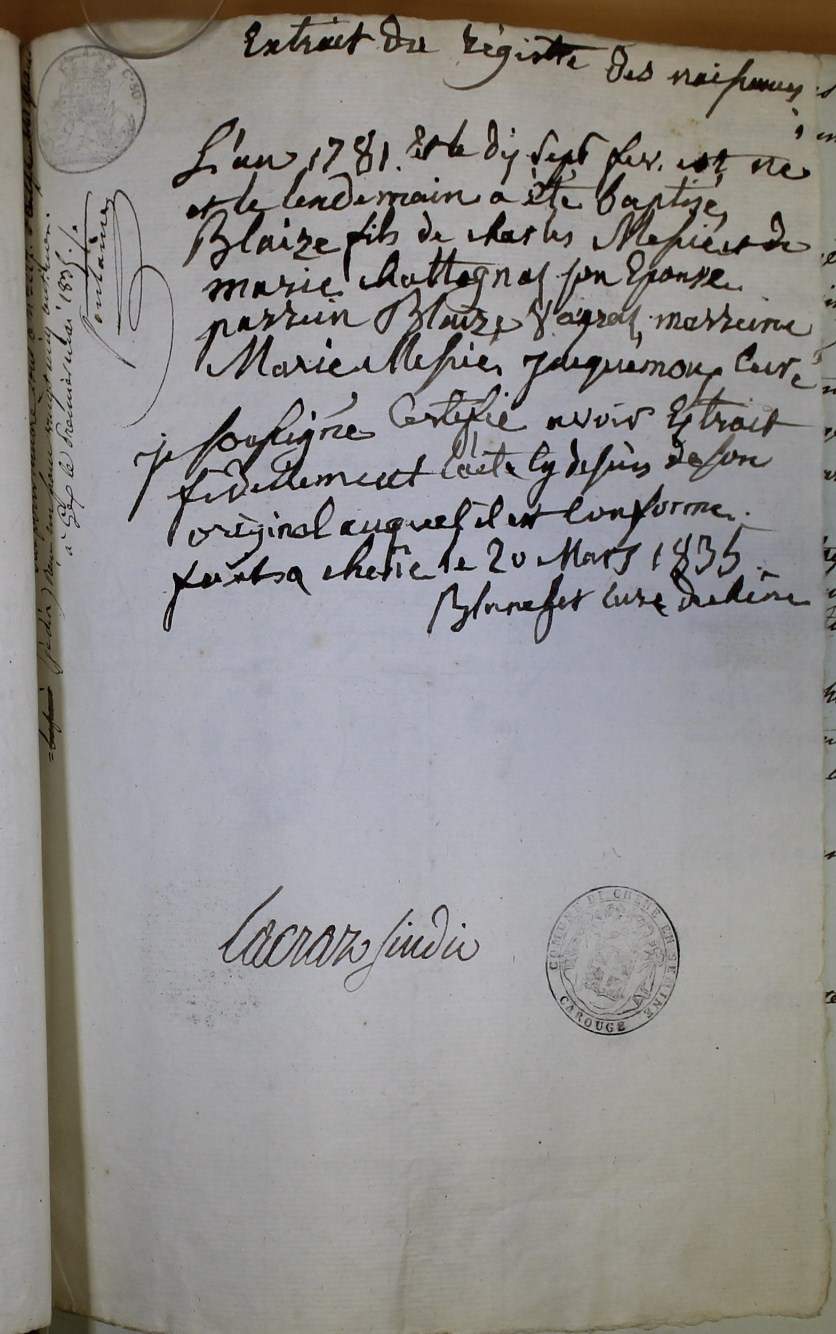 Extrait du régistre des naissances
L'an 1781. et le dix sept fev. est né
et le lendemain a été baptisé
Blaize fils de charles Messié et de
marie chattagnat son Epouse
parrein Blaize marreine
Marie Messié, Jacquemoux Curé
je soussigné Certifie avoir Extrait
fidellement l'acte cy dessus de son
original auquel il est Conforme.
fait a chene le 20 Mars 1835
curé de chêne
Lacraz sindic
COMUNE DE CHENE EN SEMINE
CAROUGE
Fontaine
à le 1835